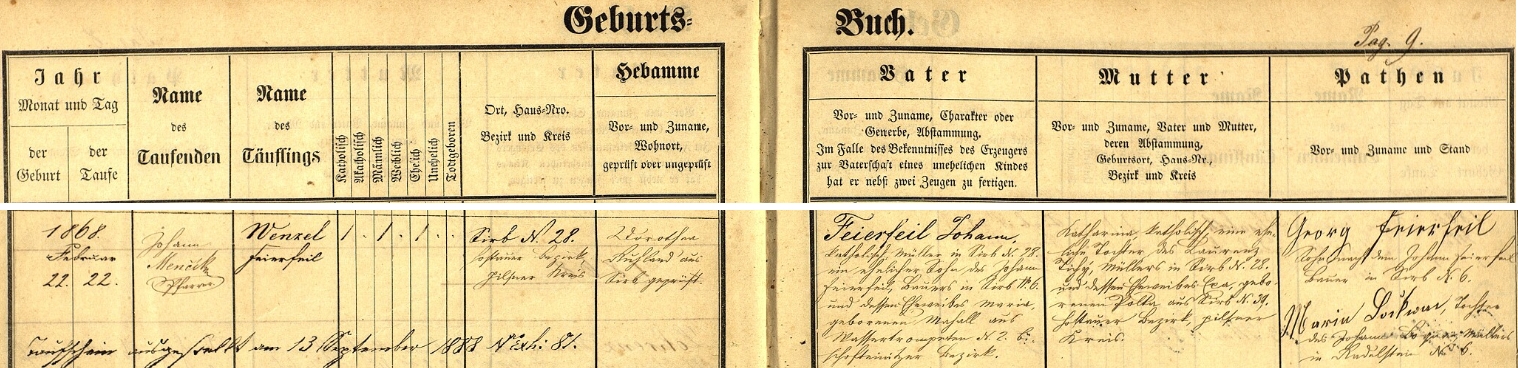 Geburts-
Buch.
Pag. 9.
Jahr
Monat und Tag
der Geburt
der Taufe
Name
des
Taufenden
Name
des
Täuflings
Katholisch
Akatholisch
Männlich
Weiblich
Ehelich
Unehelich
Todtgeboren
Ort, Haus-Nro.
Bezirk und Kreis
Hebamme
Vor- und Zuname,
Wohnort,
geprüft oder ungeprüft
Vater
Vor- und Zuname, Charakter oder
Gewerbe, Abstammung.
Im Falle des Bekenntnisses des Erzeugers
zur Vaterschaft eines unehelichen Kindes
hat er nebst zwei Zeugen zu fertigen.
Mutter
Vor- und Zuname, Vater und Mutter,
deren Abstammung,
Geburtsort, Haus-Nr.,
Bezirk und Kreis
Pathen
Vor- und Zuname und Stand
1868.
Februar
22. 22.
Johann
Menčik
Pfarrer
Wenzel
Feierfeil
1. 1. 1.
Sirb N. 28.
Hostauer Bezirk,
Pilsner Kreis
Dorothea
Ruhland aus
Sirb geprüft.
Feierfeil Johann,
katholisch, Müller in Sirb N. 28.
ein ehelicher Sohn des Johann
Feierfeil, Bauers in Sirb N. 6.
und dessen Eheweibes Maria,
geborenen Mahall aus
Wassertrompeten N. 2. Bi-
schofteinitzer Bezirk.
Katharina katholisch, eine ehe-
liche Tochter des Laurenz
Tichy, Müllers in Sirb N. 28.
und dessen Eheweibes Eva, gebo-
renen Polka aus Sirb N. 39,
Hostauer Bezirk, Pilsner
Kreis.
Georg Feierfeil
Sohn nach dem Johann Feierfeil
Bauer in Sirb N. 6.
Maria Lockwar, Tochter
des Johann Müllers
in Radelstein N. 6.
Taufschein ausgestellt am 13 September 1883 N. Exh: 81.